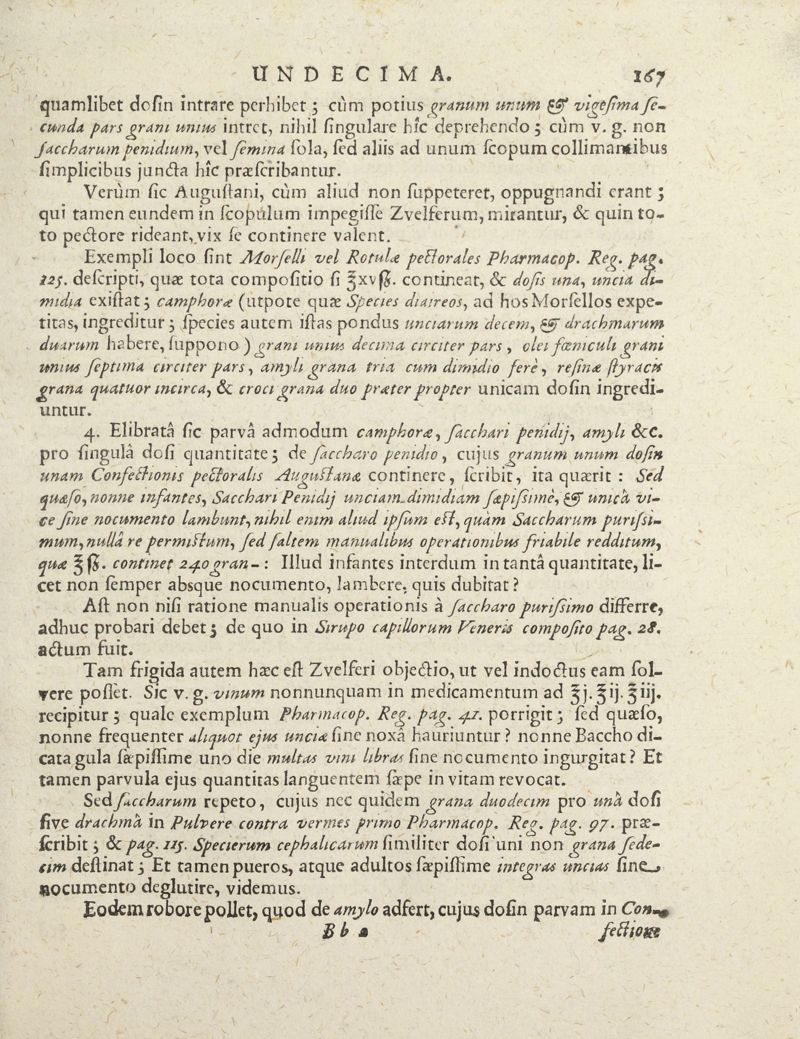 UNDECIMA. 167
quamlibet dosin intrare perhibet; cùm potius granum unum & vigesima se-
cunda pars grani unius intret, nihil singulare hîc deprehendo; cùm v. g. non
saccharum penidium, vel semina sola, sed aliis ad unum scopum collimantibus
simplicibus juncta hîc præscribantur.
Verùm sic Augustani, cùm aliud non suppeteret, oppugnandi erant;
qui tamen eundem in scopulum impegisse Zvelferum, mirantur, & quin to-
to pectore rideant, vix se continere valent.
Exempli loco sint Morselli vel Rotulæ pectorales Pharmacop. Reg. pag.
125. descripti, quæ tota compositio si ℥xvß. contineat, & dosis una, uncia di-
midia existat; camphoræ (utpote quæ Species diaireos, ad hos Morsellos expe-
titas, ingreditur; species autem istas pondus unciarum decem, & drachmarum
duarum habere, suppono) grani unius decima circiter pars, olei fœniculi grani
unius septima circiter pars, amyli grana tria cum dimidio ferè, resinæ styracis
grana quatuor incirca, & croci grana duo præter propter unicam dosin ingredi-
untur.
4. Elibratâ sic parvâ admodum camphoræ, sacchari penidij, amyli &c.
pro singulâ dosi quantitate; de saccharo penidio, cujus granum unum dosin
unam Confectionis pectoralis Augustanæ continere, scribit, ita quærit: Sed
quæso, nonne infantes, Sacchari Penidij unciam dimidiam sæpissimè, & unicà vi-
ce sine nocumento lambunt, nihil enim aliud ipsum est, quàm Saccharum purissi-
mum, nullà re permistum, sed saltem manualibus operationibus friabile redditum,
quæ ℥ß. continet 240 gran-: Illud infantes interdum in tantâ quantitate, li-
cet non semper absque nocumento, lambere, quis dubitat?
Ast non nisi ratione manualis operationis à saccharo purissimo differre,
adhuc probari debet; de quo in Sirupo capillorum Veneris composito pag. 28.
actum fuit.
Tam frigida autem hæc est Zvelferi objectio, ut vel indoctus eam sol-
vere posset. Sic v. g. vinum nonnunquam in medicamentum ad ℥j. ℥ij. ℥iij.
recipitur; quale exemplum Pharmacop. Reg. pag. 41. porrigit; sed quæso,
nonne frequenter aliquot ejus unciæ sine noxâ hauriuntur? nonne Baccho di-
cata gula sæpissime uno die multas vini libras sine nocumento ingurgitat? Et
tamen parvula ejus quantitas languentem sæpe in vitam revocat.
Sed saccharum repeto, cujus nec quidem grana duodecim pro unà dosi
sive drachmà in Pulvere contra vermes primo Pharmacop. Reg. pag. 97. præ-
scribit; & pag. 115. Specierum cephalicarum similiter dosi uni non grana sede-
cim destinat; Et tamen pueros, atque adultos sæpissime integras uncias sine
nocumento deglutire, videmus.
Eodem robore pollet, quod de amylo adfert, cujus dosin parvam in Con-
Bb 2 fectione